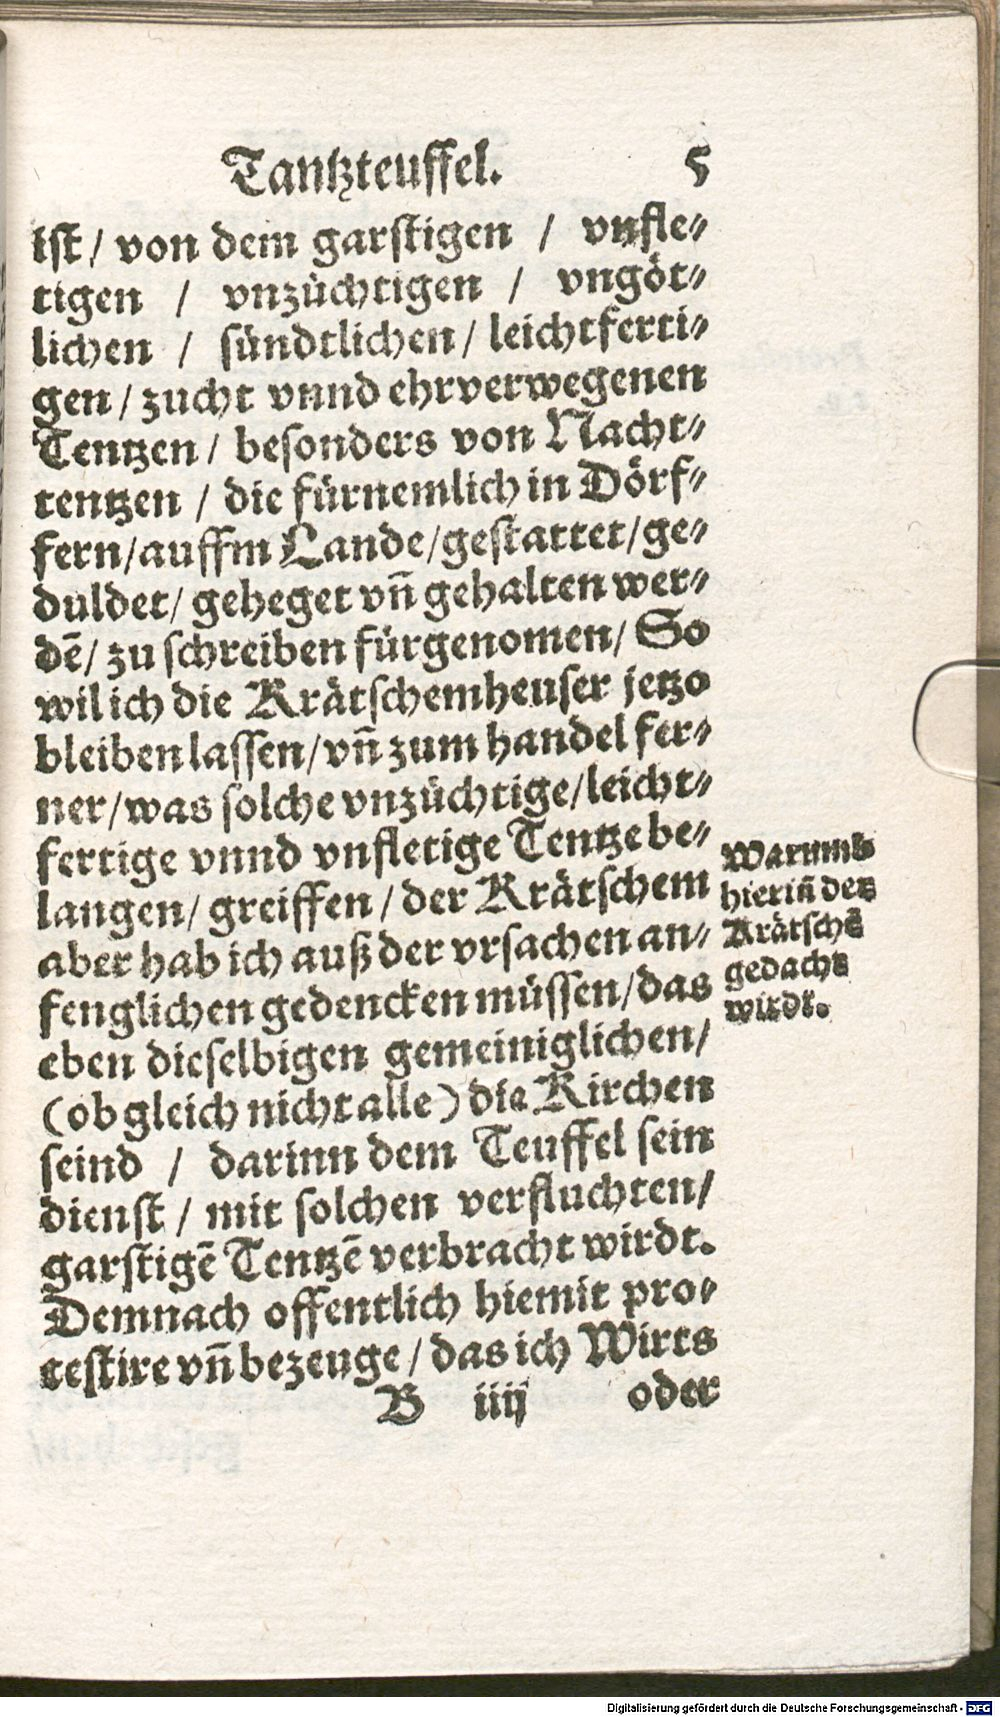 Tantzteuffel. 5
ist / von dem garstigen / vnfle⸗
tigen / vnzüchtigen / vngöt⸗
lichen / sündtlichen / leichtferti⸗
gen / zucht vnnd ehrverwegenen
Tentzen / besonders von Nacht⸗
tentzen / die fürnemlich in Dörf⸗
fern / auffm Lande / gestattet / ge⸗
duldet / geheget vñ gehalten wer⸗
dẽ / zu schreiben fürgenomen / So
wil ich die Krätschemheuser jetzo
bleiben lassen / vñ zum handel fer⸗
ner / was solche vnzüchtige / leicht⸗
fertige vnnd vnfletige Tentze be⸗
langen / greiffen / der Krätschem
aber hab ich auß der vrsachen an⸗
fenglichen gedencken müssen / das
eben dieselbigen gemeiniglichen /
(ob gleich nicht alle) die Kirchen
seind / darinn dem Teuffel sein
dienst / mit solchen verfluchten /
garstigẽ Tentzẽ verbracht wirdt.
Demnach offentlich hiemit pro⸗
testire vñ bezeuge / das ich Wirts
B iiij oder
Warumb
hierin̄ der
Krätschẽ
gedacht
wirdt.
Digitalisierung gefördert durch die Deutsche Forschungsgemeinschaft - DFG